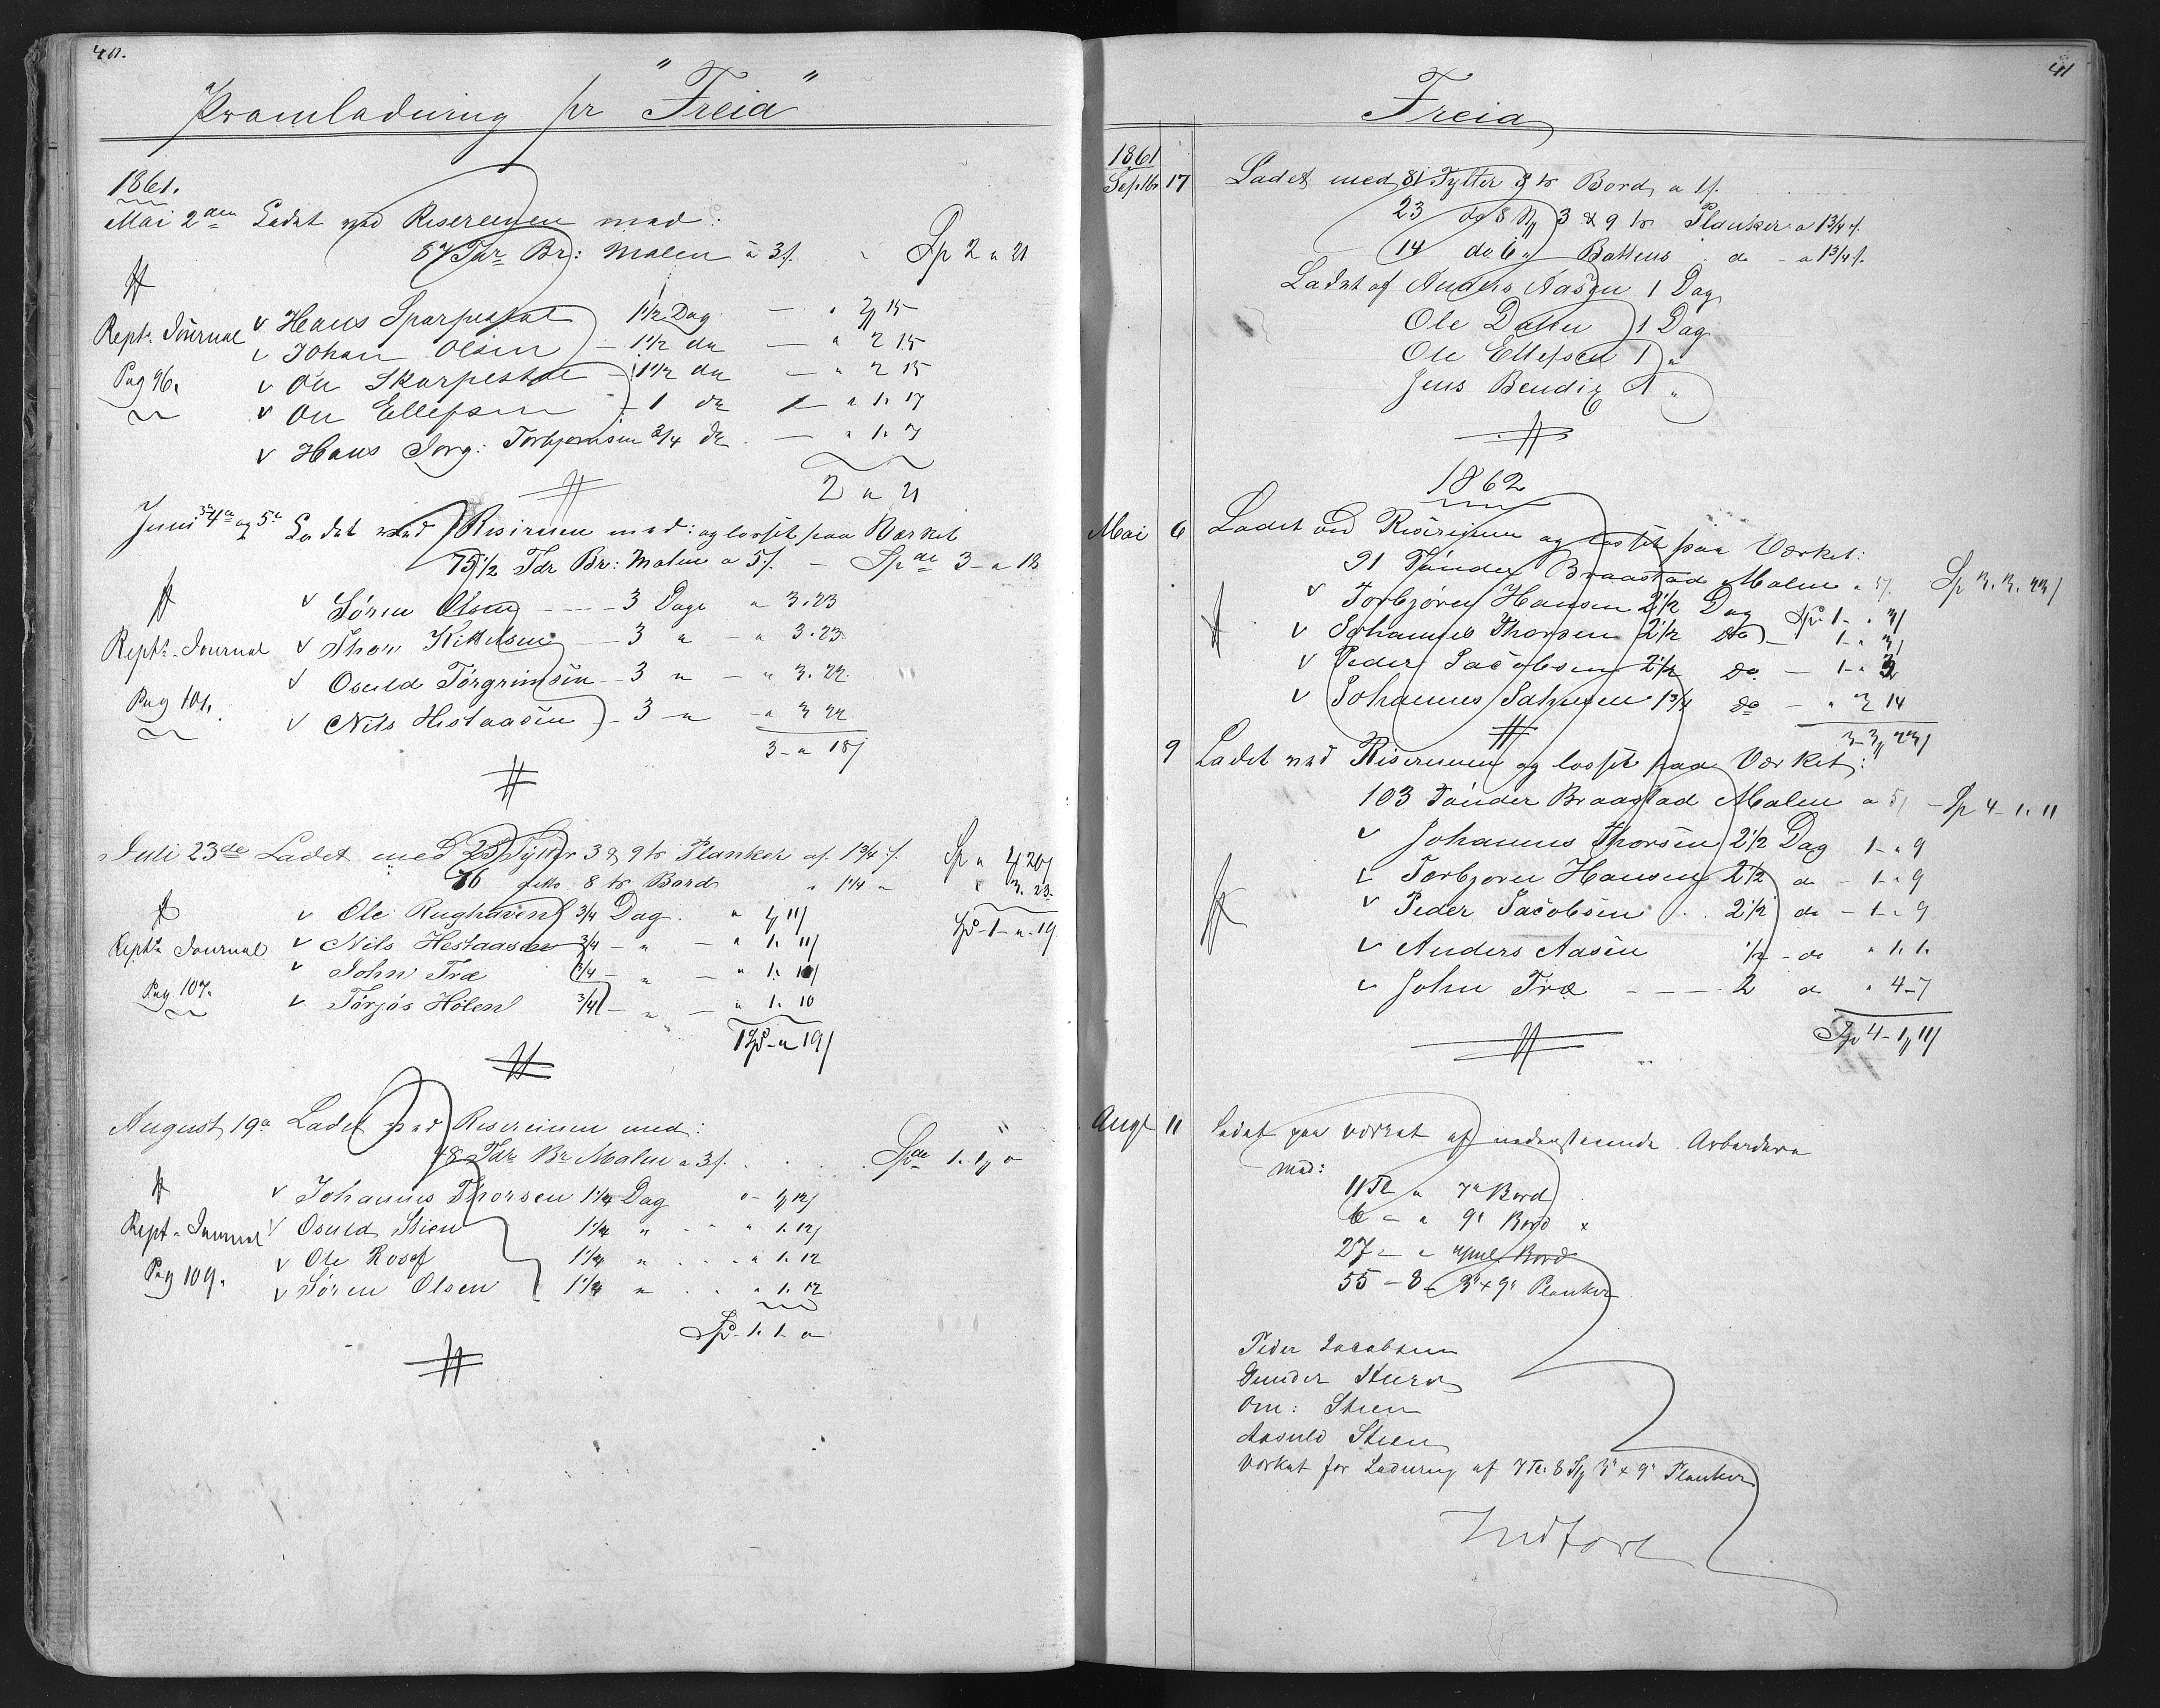 40.
Pramladning pr "Freia"
1861.
Mai 2den Ladet ved Risereienen med:
87 Tdr Br: Malm à 3/. " Sp 2 " 21
Hans Sparpestal 1 1/2 Dag — " 2 15
Rept. Journal v Johan Olsen — 1 1/2 do — " 2 15
Pag 96. v Ole Skarpestal 1 1/2 do — " 2 15
v Ole Ellefsen — 1 do — " 1. 17
v Hans Jorg: Torbjørnsen 3/4 do — " 1. 7
2 " 21
Juni 4de og 5te Ladet ved Risereien med: og losset paa Værket
75 1/2 Tdr Br: Malm a 5/. — Spd 3 - " 18
v Søren Olsen - - - - 3 Dage " 3. 23
Rept. Journal v Thor Kittelsen — 3 " — " 3. 23
v Osuld Törgrimsen — 3 " — " 3. 22
Pag 101. v Nils Hestaasen — 3 — " — " 3 22
3 - " 18/
Juli 23de Ladet med 25 Tylter 3 & 9 to Planker a/. 1 3/4 /. Sp " 4 20/
76 ditto 8 to Bord " 1 1/4 " " 3. 23.
v Ole Rughaven 3/4 Dag " 1 11/ Sp - 1 - " 19
Rept. Journal v Nils Hestaasen 3/4 — " — " 1. 11/
v John Træ 3/4 — " — " 1. 10/
Pag. 107. v Törjös Hölen 3/4 — " — " 1. 10
1 Sp - " 19/
August 19de Ladet ved Risereienen med:
48 Tdr Br Malm a 3/. Spd 1. 1 "
v Johannes Thorsen 1 1/4 Dag " - 1 12/
Rept. Journal v Osuld Stien 1 1/4 " " 1. 12/
v Ole Rosef 1 1/4 " " 1. 12
Pag 109. v Søren Olsen 1 1/4 " " 1. 12
Sp - 1. 1 - "
41
Freia
1861
Septbr 17 Ladet med 81 Tylter 8 to Bord a 1/.
23 do 8 3 & 9 to Planker a 1 3/4 /.
14 do 6 " Battens do - a 1 3/4 /.
Ladet af Anders Aasen 1 Dag
Ole Dalen 1 Dag
Ole Ellefsen 1 "
Jens Bendix 1 "
1862
Mai 6 Ladet ved Risereienen og losset paa Værket:
91 Tönder Braastad Malm a 5/. Sp 3. 3. 23/
v Torbjøren Hansen 2 1/2 Dag Sp. 1 - " 3/
v Johannes Thorsen 2 1/2 do — 1 - " 3/
v Peder Jacobsen 2 1/2 do — 1 - " 3
v Johannes 1 3/4 do — " 3 14
3 - 3 23/
9 Ladet ved Risereienen og losset paa Værket:
103 Tönder Braastad Malm a 5/ - Sp 4 - 1. 11
v Johannes Thorsen 2 1/2 Dag 1 - " 9
v Torbjoren Hansen 2 1/2 do - 1 - " 9
v Peder Jacobsen 2 1/2 do - 1 - " 9
v Anders Aasen 1/2 - do " 1. 1.
v John Træ - - - - 2 do " 4 - 7
Sp 4 - 1 11/
Augt 11 Ladet paa værket af nedenstaaende Arbeidere
med:
11 Tl " 7" Bord
6 — " 9" Bord
27 — " Bord
55 — 8 — 3" x 9" Planker
Peder Jacobsen
Gunder
Om: Stien
Aasuld Stien
Værket for Ladning af 7 Tl. 8 3" x 9" Planker
Indfört